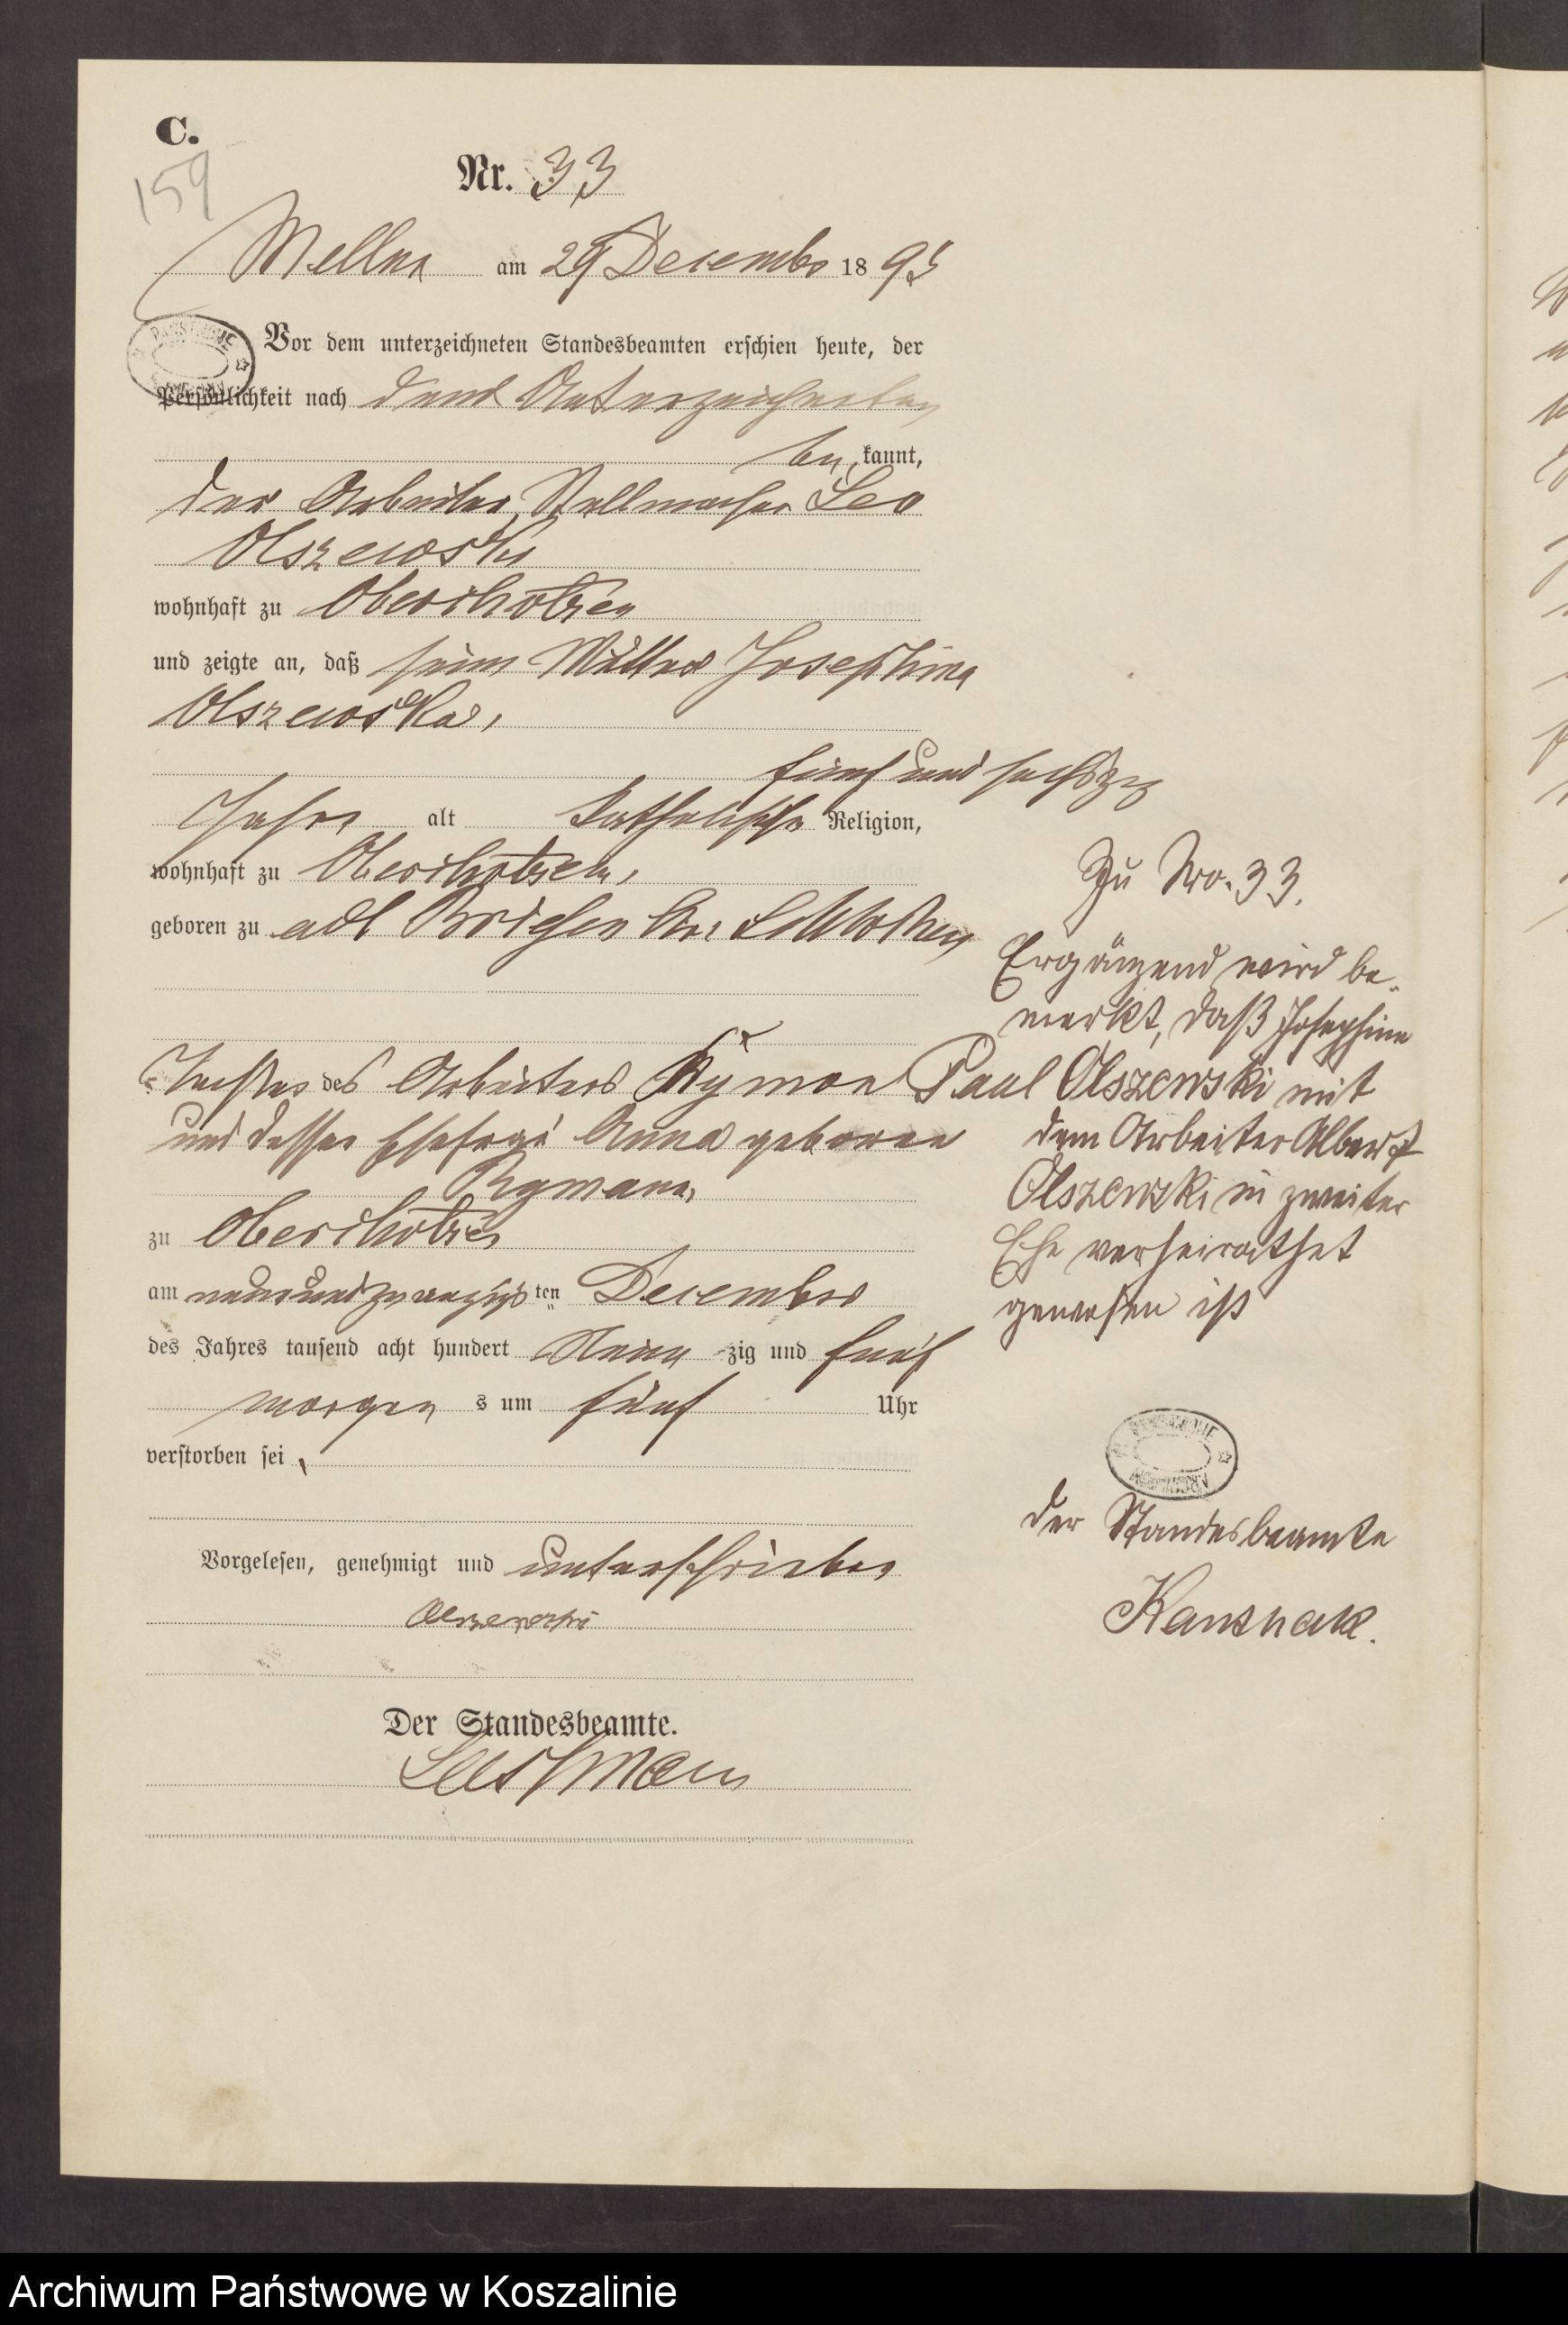 C.
159
Nr. 33
Mellno am 29 December 1895
Vor dem unterzeichneten Standesbeamten erschien heute, der
Persönlichkeit nach dem Unterzeichneten
be kannt,
der Arbeiter, Stellmacher Leo
Olszewski
wohnhaft zu
und zeigte an, daß seine Mutter Josephine
Olszewska,
fünf und sechszig
Jahre alt katholischer Religion,
wohnhaft zu
geboren zu adl Briesen Kr. Schlochau
Tochter des Arbeiters Rymon Paul
und dessen Ehefrau Anna geborene
Rymann,
zu
am neunundzwanzigsten December
des Jahres tausend acht hundert Neun zig und fünf
morgen s um fünf Uhr
verstorben sei,
Vorgelesen, genehmigt und unterschrieben
Olszewski
Der Standesbeamte.
Zu Nro. 33.
Ergänzend wird be-
merkt, daß Josephine
Olszewski mit
dem Arbeiter Albert
Olszewski in zweiter
Ehe verheirathet
gewesen ist
der Standesbeamte
Archiwum Państwowe w Koszalinie